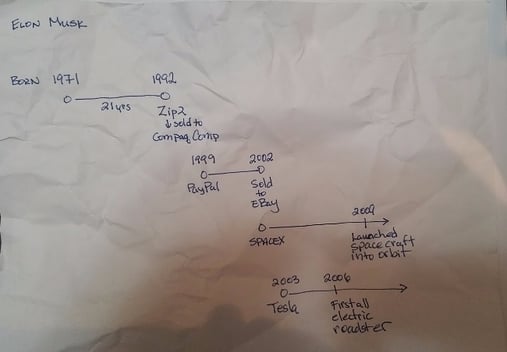 ELON MUSK
BORN 1971 1992
21 yrs
Zip2
↓ sold to
Compaq Comp
1999 2002
PayPal
Sold
to
EBay
SPACEX
2009
Launched
spacecraft
into orbit
2003 2006
Tesla
First all
electric
roadster